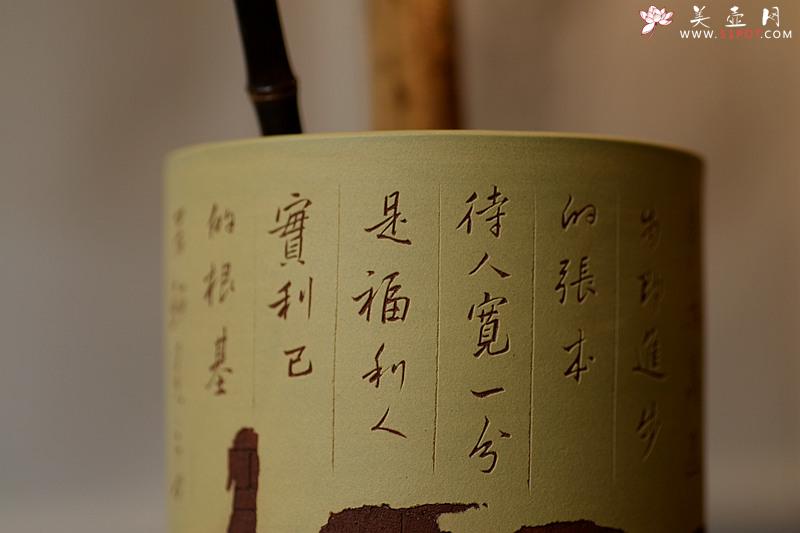 美壶网
WWW.51POT.COM
为功進步
的張本
待人寬一分
是福利人
實利己
的根基